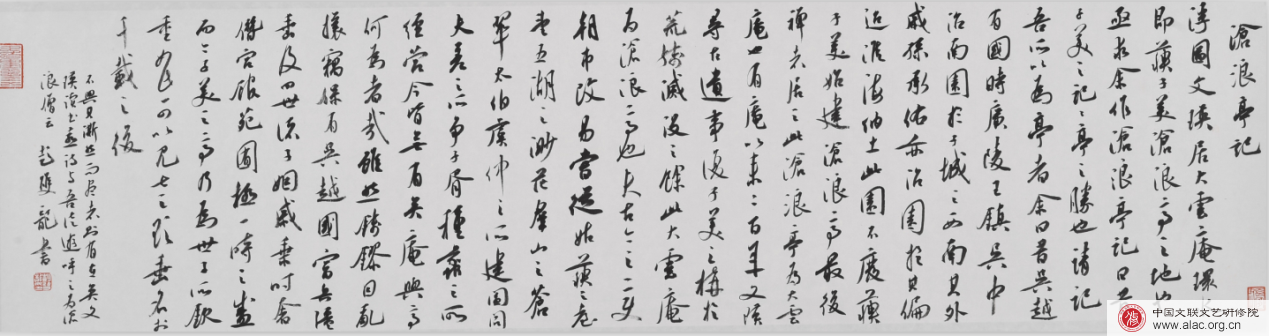 滄浪亭記
浮圖文瑛居大雲庵環水
即蘇子美滄浪亭之地也
亟求余作滄浪亭記曰昔
子美之記記亭之勝也請子記
吾所以為亭者余曰昔吳越
有國時廣陵王鎮吳中
治南園於子城之西南其外
戚孫承佑亦治園於其偏
迨淮海納土此園不廢蘇
子美始建滄浪亭最後
禪者居之此滄浪亭為大雲
庵也有庵以來二百年文瑛
尋古遺事復子美之構於
荒殘滅沒之餘此大雲庵
為滄浪亭也夫古今之變
朝市改易嘗從姑蘇之臺
望五湖之渺茫群山之蒼
翠太伯虞仲之所建闔閭
夫差之所爭子胥種蠡之所
經營今皆無有矣庵與亭
何為者哉雖然錢鏐因亂
攘竊保有吳越國富兵強
垂及四世諸子姻戚乘時奢
僭宮館苑囿極一時之盛
而子美之亭乃為世子所欽
重如此可以見士之欲垂名於
千載之後
不與其澌然而俱盡者則有在矣文
瑛讀書喜詩與吾徒遊呼之為滄
浪僧云 趙雁龍書
中国文联文艺研修院
www.alac.org.cn